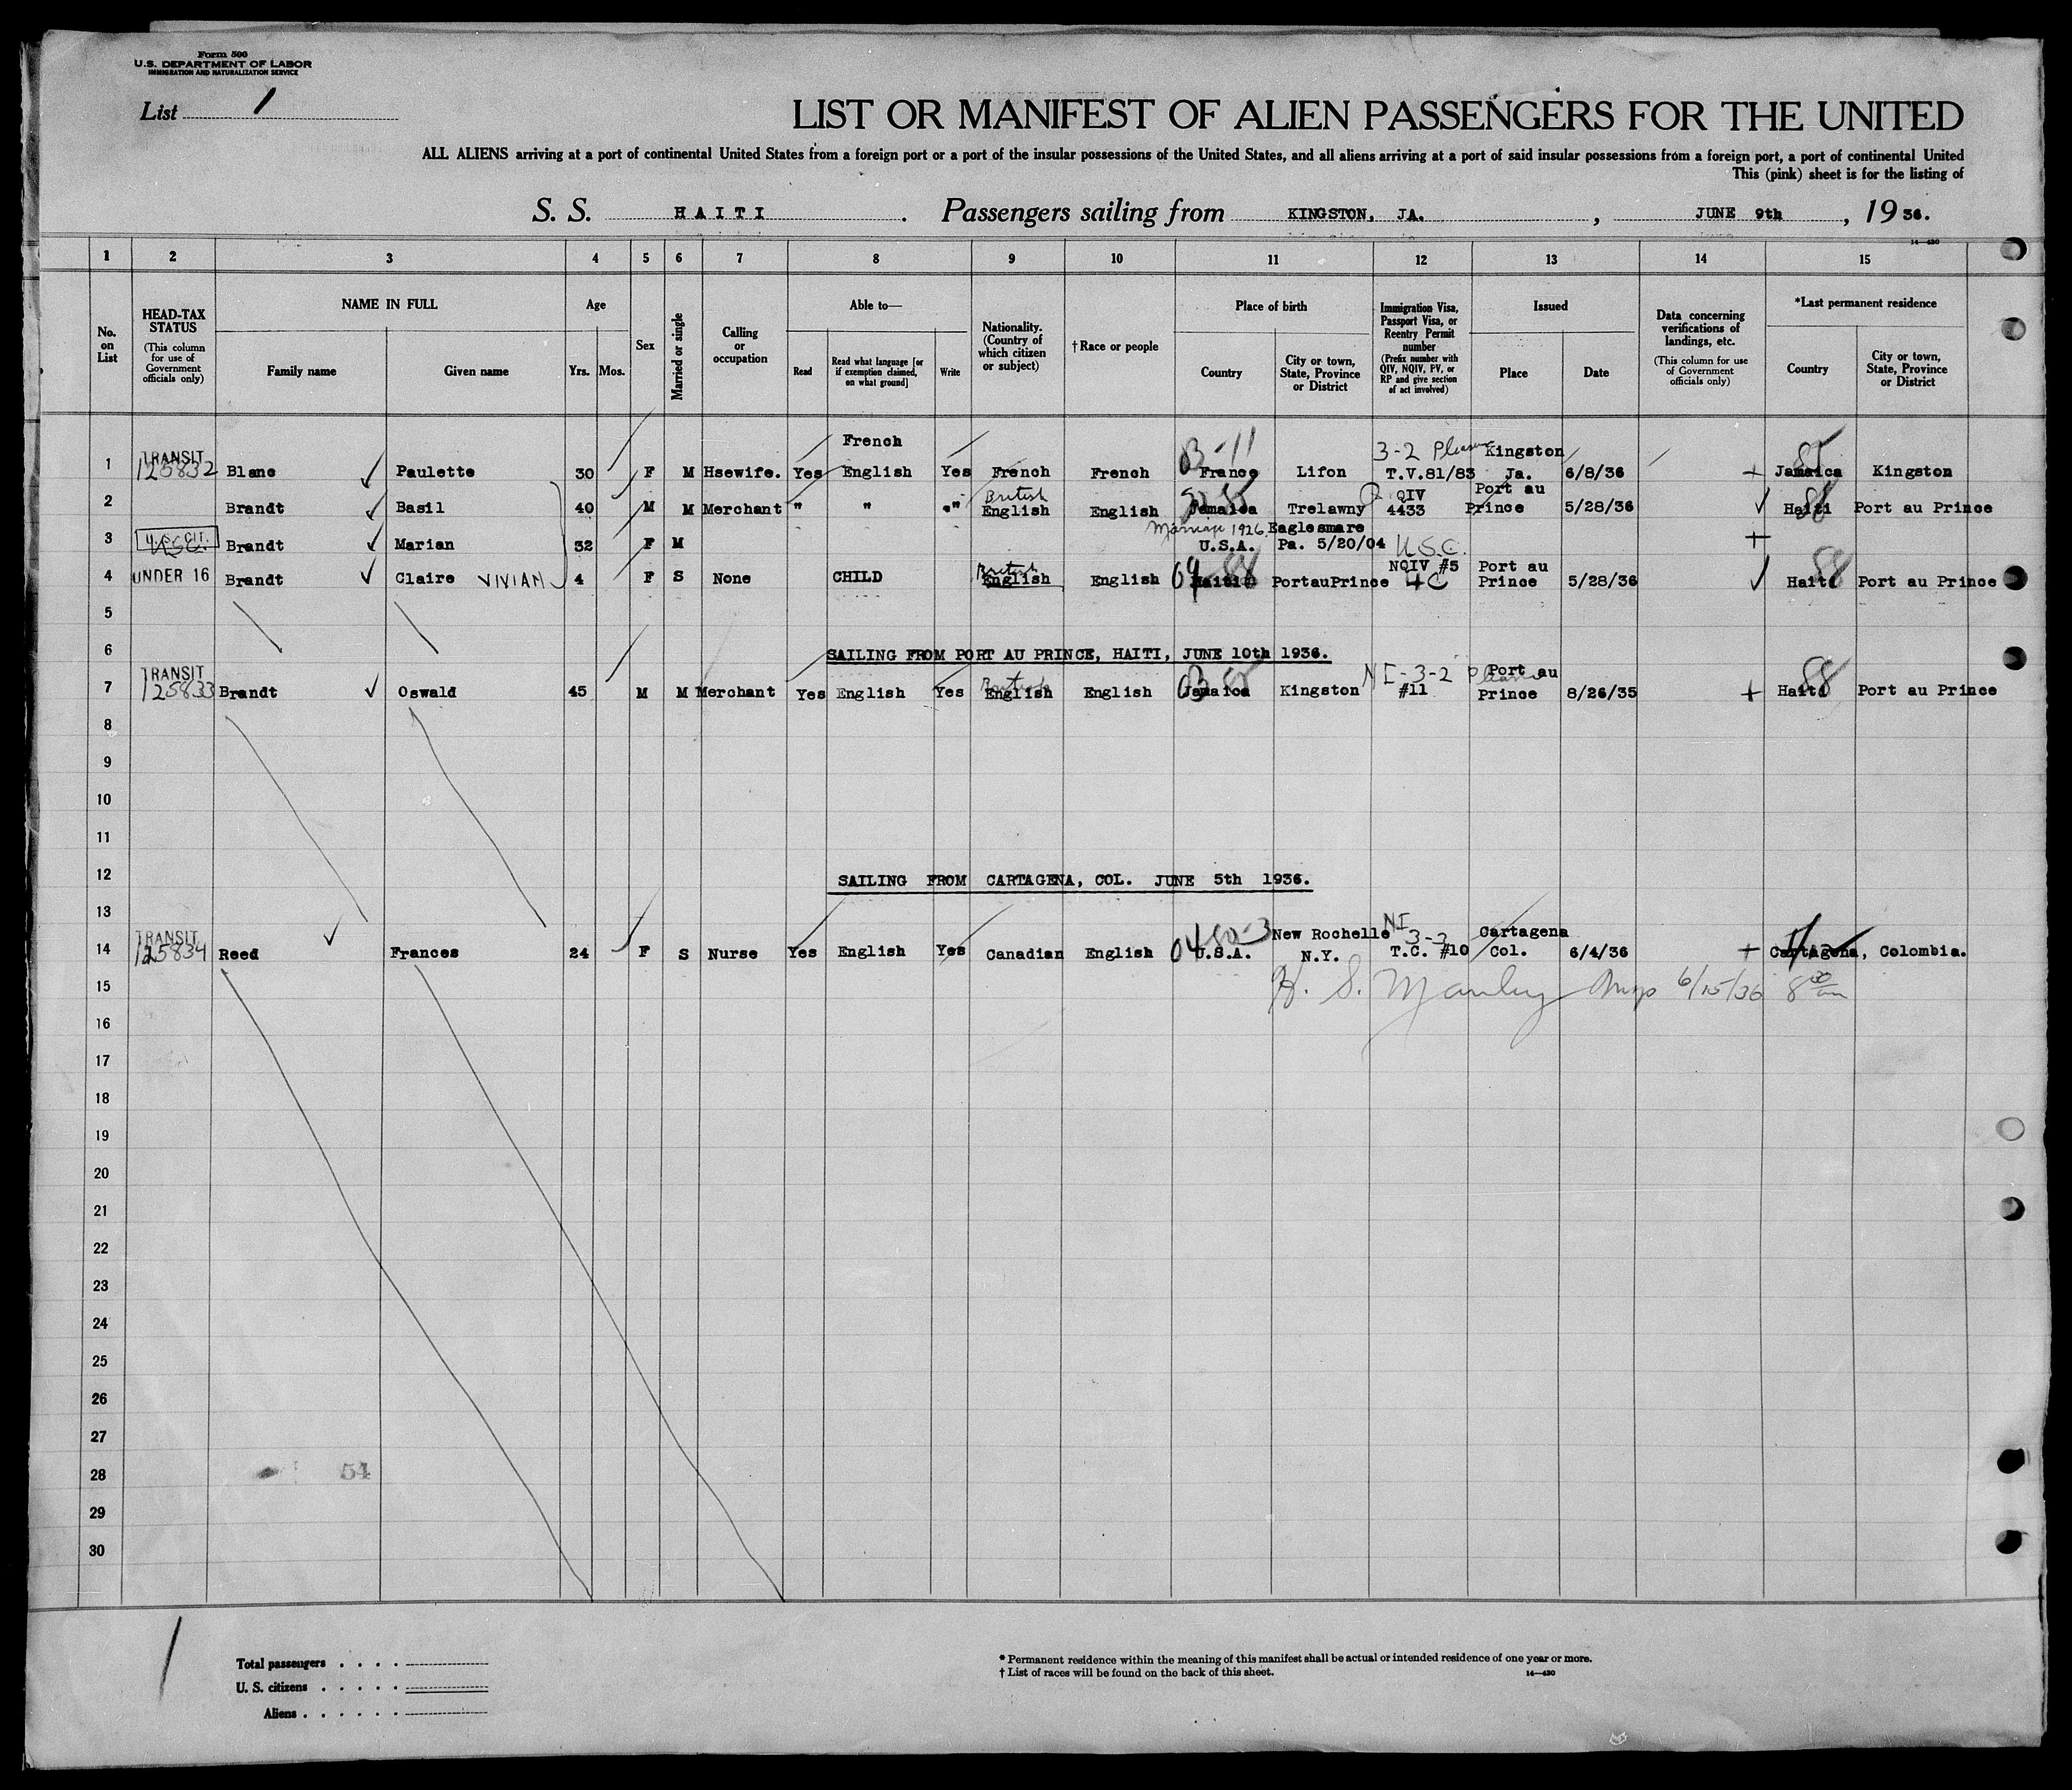 Form 500
U.S. DEPARTMENT OF LABOR
IMMIGRATION AND NATURALIZATION SERVICE
List 1
LIST OR MANIFEST OF ALIEN PASSENGERS FOR THE UNITED
ALL ALIENS arriving at a port of continental United States from a foreign port or a port of the insular possessions of the United States, and all aliens arriving at a port of said insular possessions from a foreign port, a port of continental United
This (pink) sheet is for the listing of
S. S. HAITI. Passengers sailing from KINGSTON, JA., JUNE 9th, 1936.
14—430
1 2 3 4 5 6 7 8 9 10 11 12 13 14 15
No. on List
HEAD-TAX STATUS (This column for use of Government officials only)
NAME IN FULL
Family name
Given name
Age
Yrs. Mos.
Sex
Married or single
Calling or occupation
Able to—
Read
Read what language [or if exemption claimed, on what ground]
Write
Nationality. (Country of which citizen or subject)
†Race or people
Place of birth
Country
City or town, State, Province or District
Immigration Visa, Passport Visa, or Reentry Permit number (Prefix number with QIV, NQIV, PV, or RP and give section of act involved)
Issued
Place
Date
Data concerning verifications of landings, etc. (This column for use of Government officials only)
*Last permanent residence
Country
City or town, State, Province or District
1 TRANSIT 125832 Blanc Paulette 30 F M Hsewife. Yes French English Yes French French 03-11 France Lifon 3-2 T.V.81/83 Kingston Ja. 6/8/36 Jamaica Kingston
2 Brandt Basil 40 M M Merchant " " " British English English Jamaica Trelawny QIV 4433 Port au Prince 5/28/36 Haiti Port au Prince
3 U.S. CIT. U.S.C. Brandt Marian 32 F M Marriage 1926 U.S.A. Eaglesmare Pa. 5/20/04 U.S.C.
4 UNDER 16 Brandt Claire VIVIAN 4 F S None CHILD British English English Haiti PortauPrince NQIV #5 4C Port au Prince 5/28/36 Haiti 88 Port au Prince
5
6 SAILING FROM PORT AU PRINCE, HAITI, JUNE 10th 1936.
7 TRANSIT 125833 Brandt Oswald 45 M M Merchant Yes English Yes British English English Jamaica Kingston NI-3-2 #11 Port au Prince 8/26/35 Haiti 88 Port au Prince
8
9
10
11
12 SAILING FROM CARTAGENA, COL. JUNE 5th 1936.
13
14 TRANSIT 125834 Reed Frances 24 F S Nurse Yes English Yes Canadian English U.S.A. New Rochelle N.Y. NI 3-2 T.C. #10 Cartagena Col. 6/4/36 Cartagena, Colombia.
15 H. S. Manley Insp 6/15/36 8
16
17
18
19
20
21
22
23
24
25
26
27
28 54
29
30
1
Total passengers
U. S. citizens
Aliens
* Permanent residence within the meaning of this manifest shall be actual or intended residence of one year or more.
† List of races will be found on the back of this sheet.
14—430